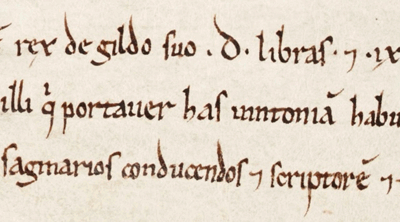 rex de gildo suo . D . libras . ⁊ . ix
illi q̓ portauer has uuintoniā habu
sagmarios conducendos ⁊ scriptorē ⁊